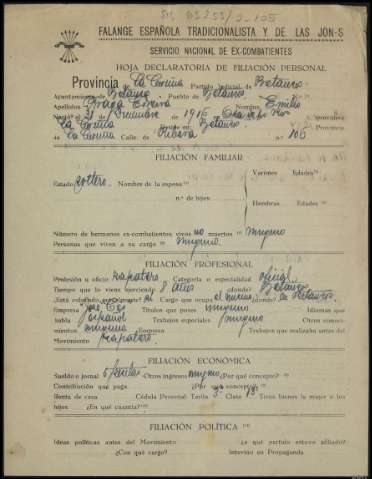 FALANGE ESPAÑOLA TRADICIONALISTA Y DE LAS JON-S
SERVICIO NACIONAL DE EX-COMBATIENTES
HOJA DECLARATORIA DE FILIACIÓN PERSONAL
Provincia de La Coruña Partido Judicial de Betanzos
Ayuntamiento de Betanzos Pueblo de Betanzos
Apellidos Nombre Emilio
Nació el 31 Diciembre de 1916
La Coruña Betanzos Provincia
de La Coruña Calle de Ribera n.º 106
FILIACIÓN FAMILIAR
Estado soltero Nombre de la esposa Varones Edades
n.º de hijos
Hembras Edades
Número de hermanos ex-combatientes vivos no muertos ninguno
Personas que viven a su cargo ninguno
FILIACIÓN PROFESIONAL
Profesión u oficio zapatero Categoría o especialidad oficial
Tiempo que lo viene ejerciendo 8 años ¿dónde? Betanzos
¿Está colocado actualmente? si Cargo que ocupa el mismo ¿dónde? en Betanzos
Empresa José Títulos que posee ninguno Idiomas que
habla español Trabajos especiales ninguno Otros conoci-
mientos ninguno Trabajos que realizaba antes del
Movimiento zapatero
FILIACIÓN ECONÓMICA
Sueldo o jornal 6 pesetas Otros ingresos ninguno ¿Por qué concepto?
Contribución que paga ¿Por qué concepto?
Renta de casa Cédula Personal Tarifa 3ª Clase 13ª Tiene bienes la mujer o los
hijos ¿En qué cuantía?
FILIACIÓN POLÍTICA
Ideas políticas antes del Movimiento ¿a qué partido estuvo afiliado?
¿Con qué cargo? Intervino en Propaganda